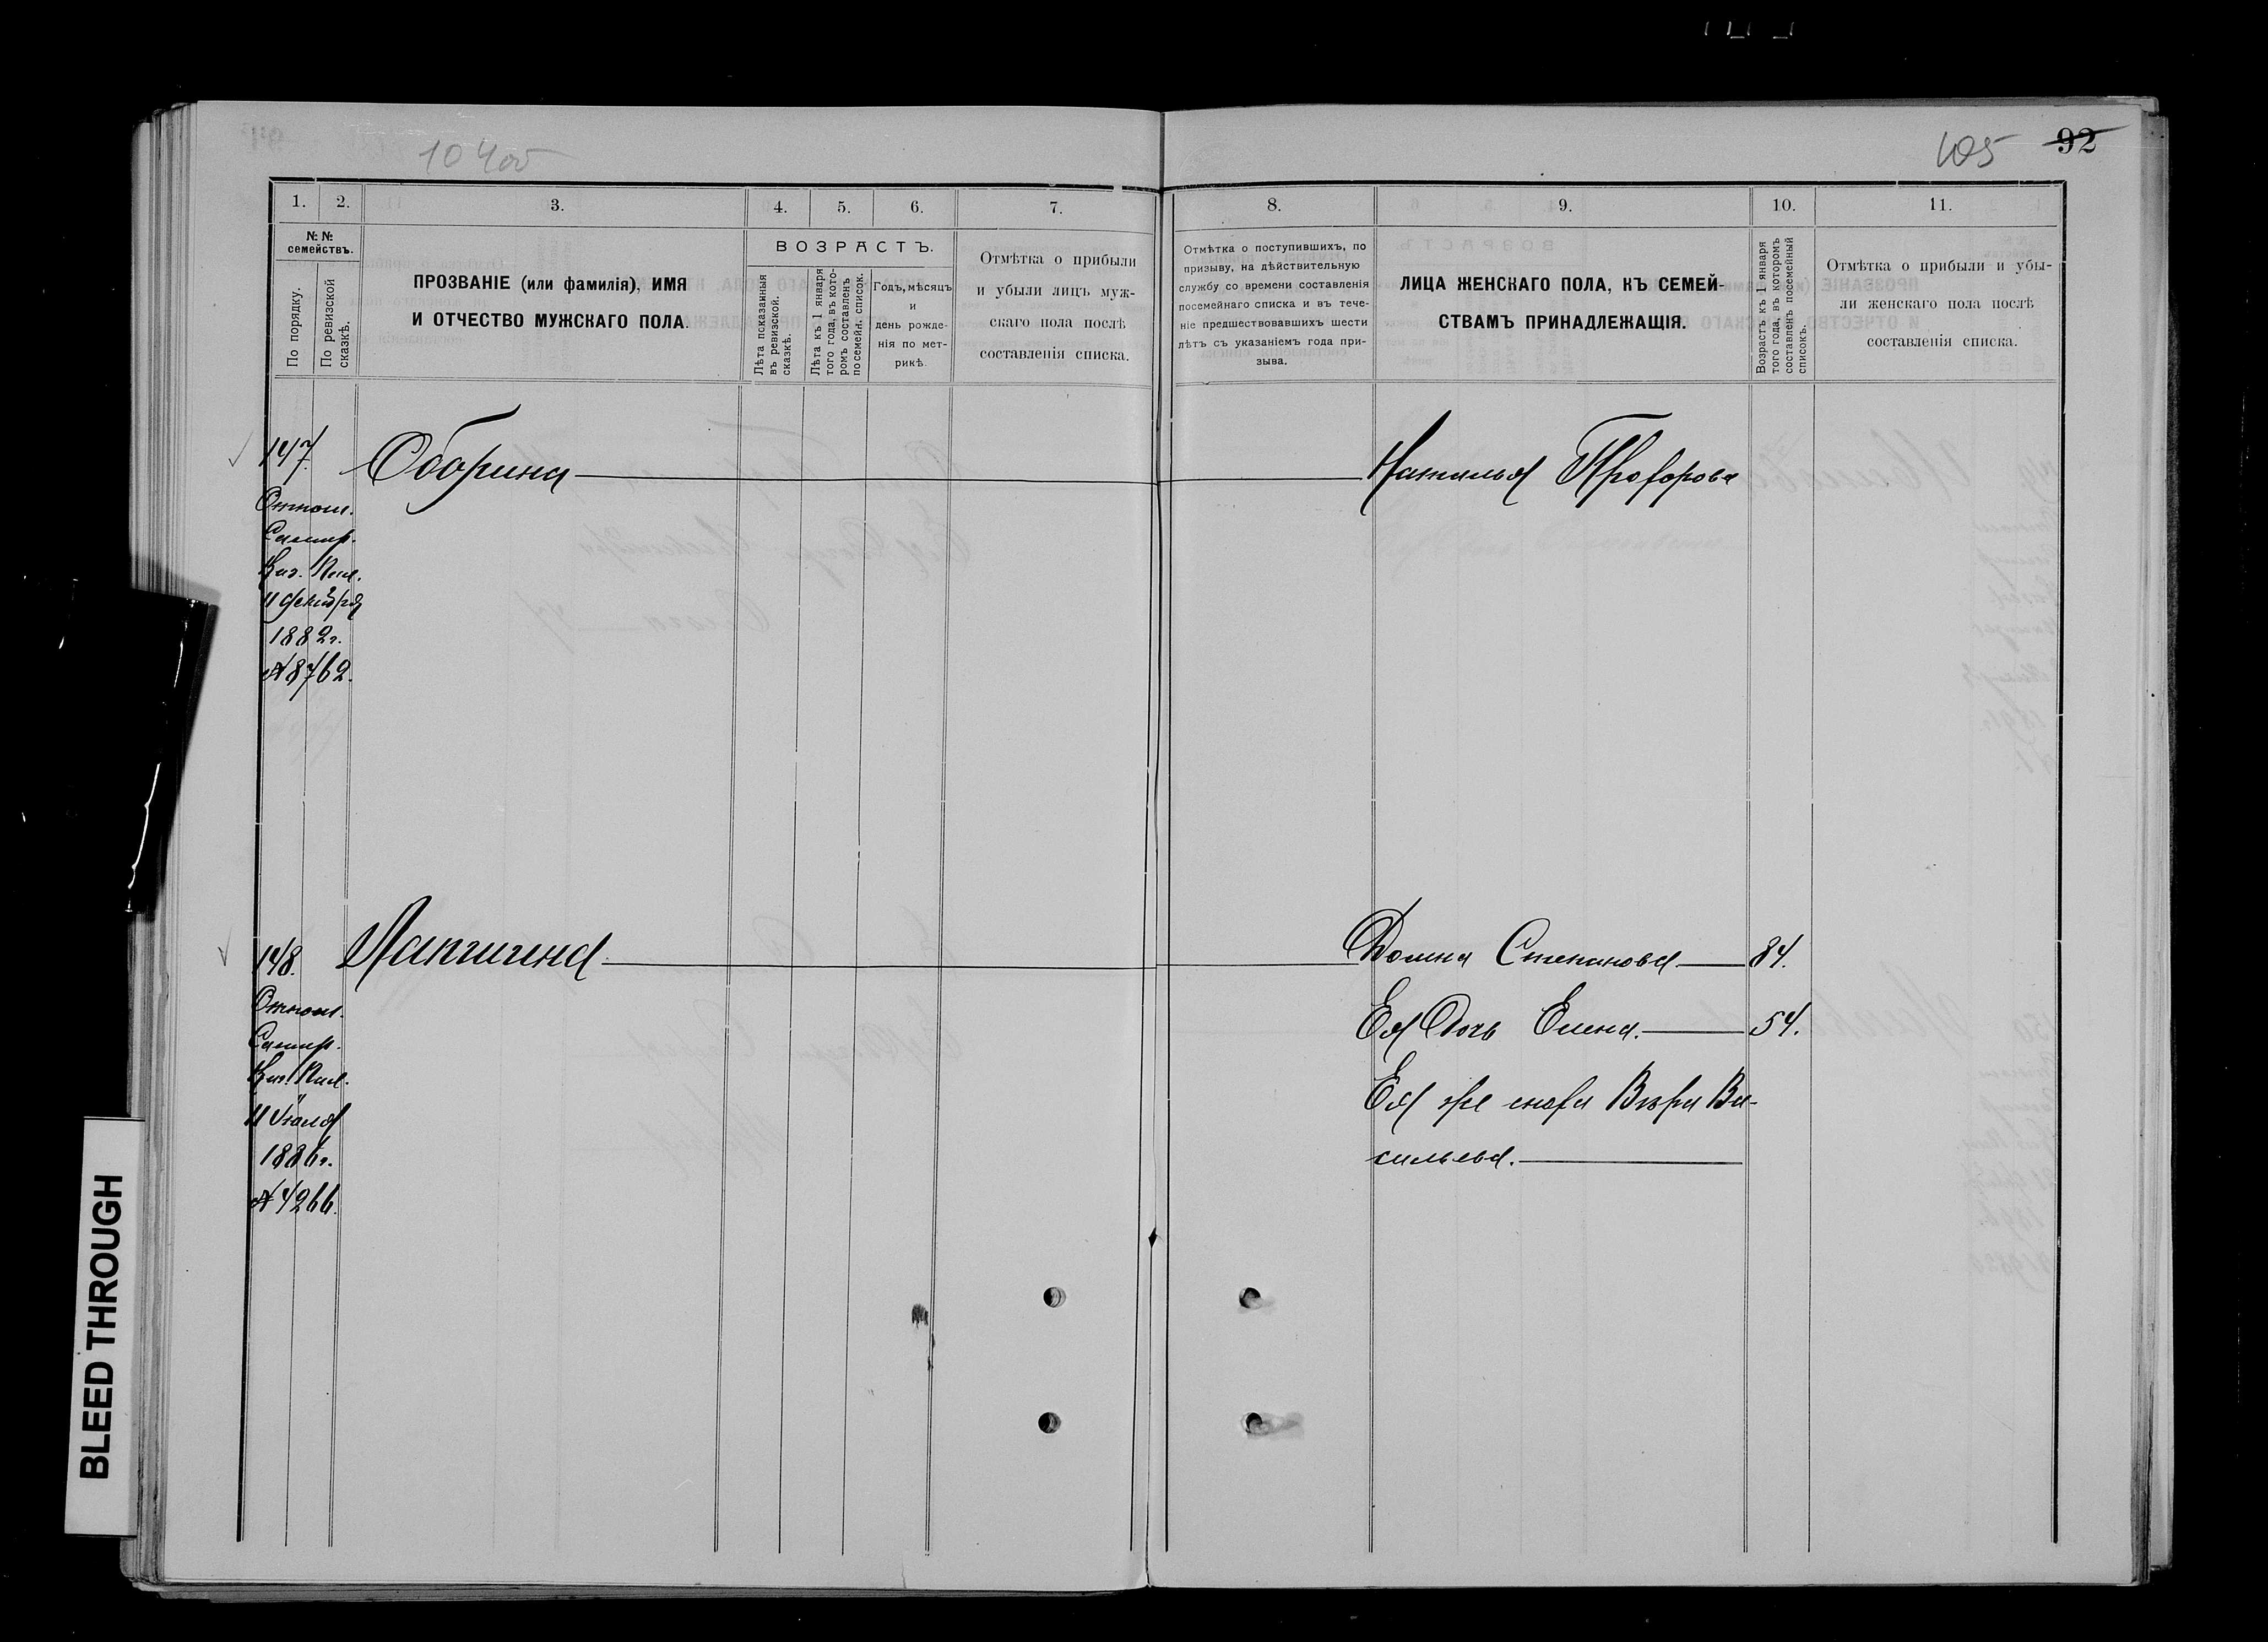 104об
105 92
1. 2. 3. 4. 5. 6. 7. 8. 9. 10. 11.
№ №
семействъ.
По порядку.
По ревизской
сказкѣ.
ПРОЗВАНІЕ (или фамилія), ИМЯ
И ОТЧЕСТВО МУЖСКАГО ПОЛА.
ВОЗРАСТЪ.
Лѣта показанныя
въ ревизской
сказкѣ.
Лѣта къ 1 января
того года, въ кото-
ромъ составленъ
посемейн. список.
Годъ, мѣсяцъ
и
день рожде-
нія по мет-
рикѣ.
Отмѣтка о прибыли
и убыли лицъ муж-
скаго пола послѣ
составленія списка.
Отмѣтка о поступившихъ, по
призыву, на дѣйствительную
службу со времени составленія
посемейнаго списка и въ тече-
ніе предшествовавшихъ шести
лѣтъ съ указаніемъ года при-
зыва.
ЛИЦА ЖЕНСКАГО ПОЛА, КЪ СЕМЕЙ-
СТВАМЪ ПРИНАДЛЕЖАЩІЯ.
Возрастъ къ 1 января
того года, въ которомъ
составленъ посемейный
списокъ.
Отмѣтка о прибыли и убы-
ли женскаго пола послѣ
составленія списка.
147. Оборина Наталья Прохорова
Отнош.
Самар.
Каз. Пал.
11
1882г.
№ 8762.
148. Лапшина Домна Степанова 84.
Отнош.
Самар.
Каз. Пал.
11 Іюля
1886г.
№ 4266.
Ея Дочь Елена. 54.
Ея же сноха Вѣра Ва-
сильева.
BLEED THROUGH